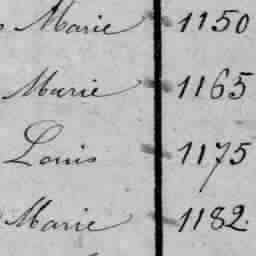 Marie 1150
Marie 1165
Louis 1175
Marie 1182.